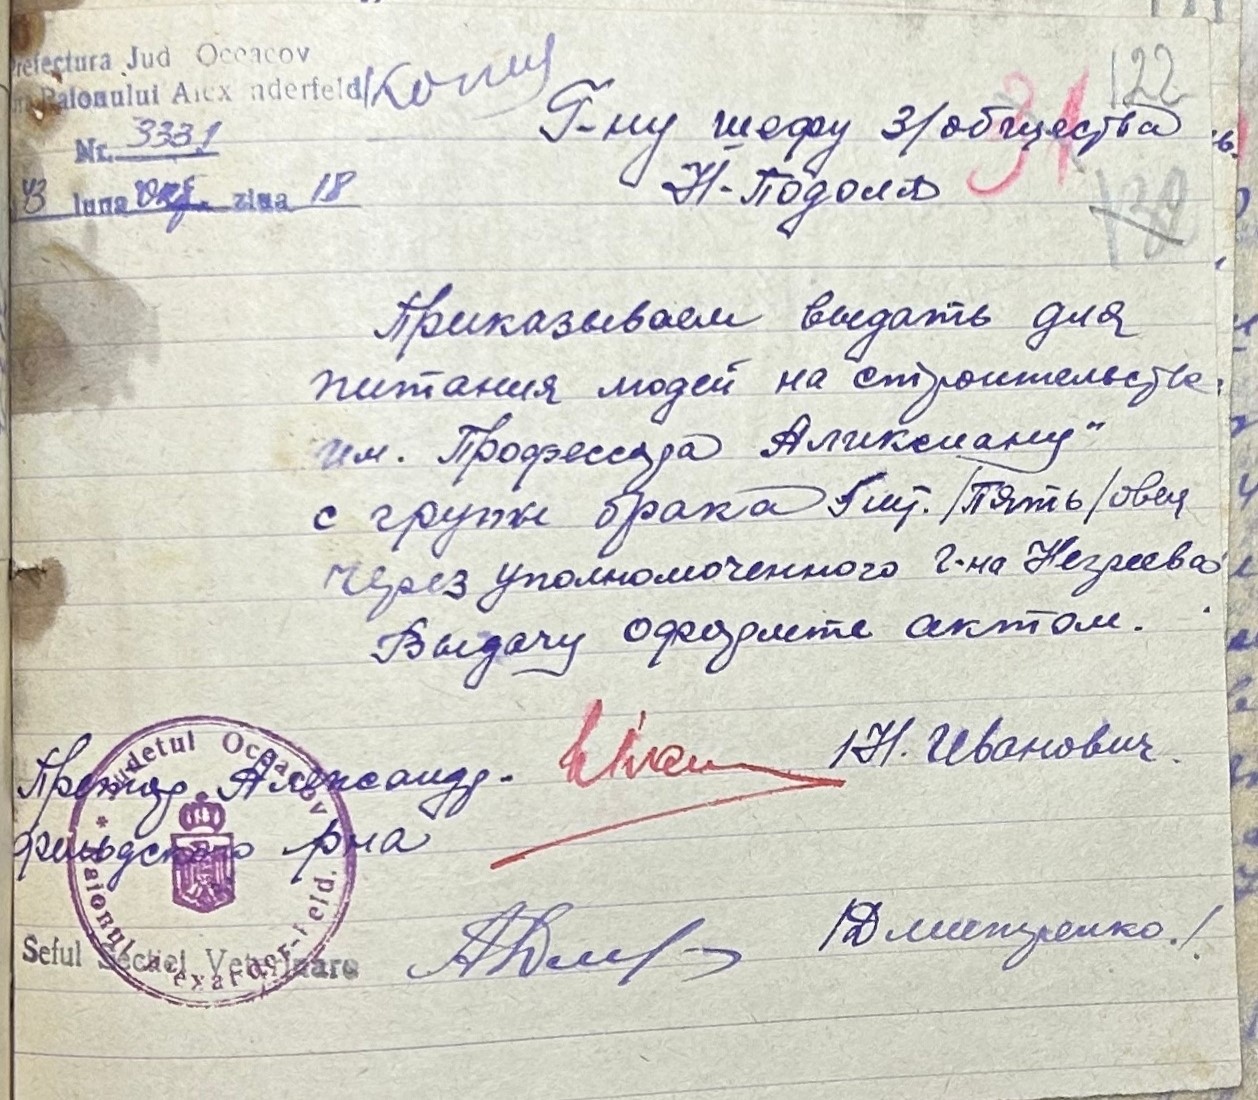 Prefectura Jud Oceacov
Raionului Alexanderfeld
Копия
Nr. 3331
43 luna Окт. ziua 18
122
31
132
Г-ну шефу з/общества
Н-Подоля
Приказываем выдать для
питания людей на строительстве
им. Профессора Аликсиану"
с групы брака 5 шт. /Пять/ овец
через уполномоченного г-на
Выдачу оформите актом.
Претор Александр-
фельдского р-на
/Н. Иванович.
Judetul Oceacov
Raionul Alexanderfeld.
Seful Sectiei Veterinare
/Дмитренко./